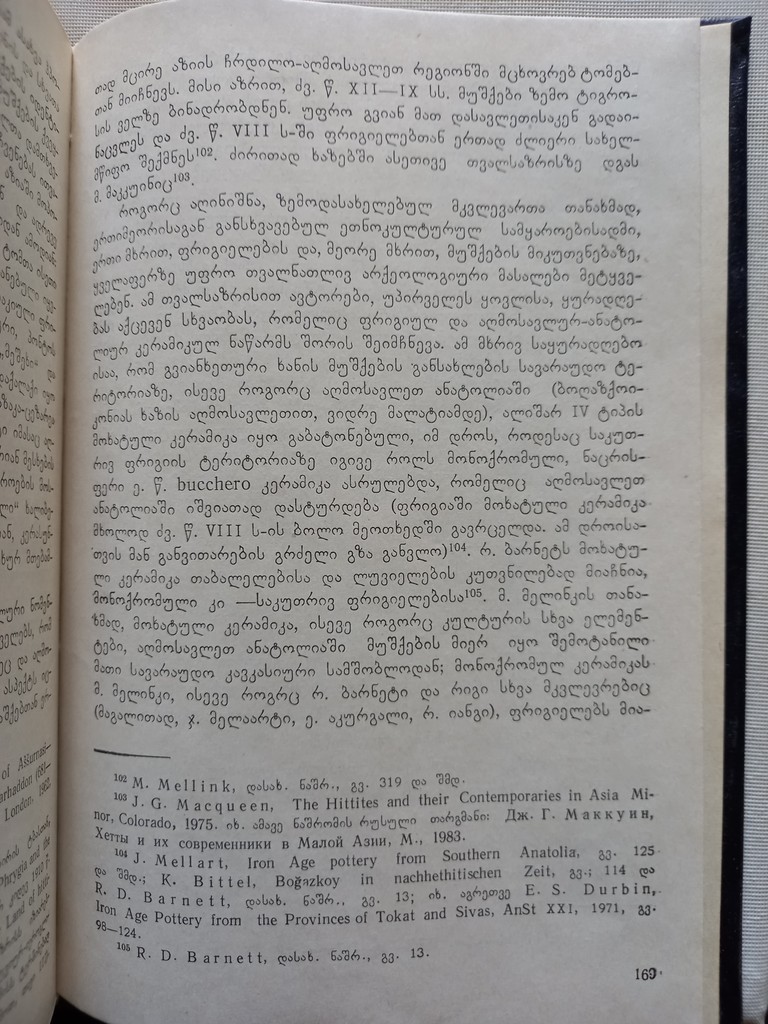 თად მცირე აზიის ჩრდილო-აღმოსავლეთ რეგიონში მცხოვრებ ტომებ-
თან მიიჩნევს. მისი აზრით, ძვ. წ. XII—IX სს. მუშქები ზემო ტიგრო-
სის ველზე ბინადრობდნენ. უფრო გვიან მათ დასავლეთისაკენ გადაი-
ნაცვლეს და ძვ. წ. VIII ს-ში ფრიგიელებთან ერთად ძლიერი სახელ-
მწიფო შექმნეს¹⁰². ძირითად ხაზებში ასეთივე თვალსაზრისზე დგას
მ. მაკკუინიც¹⁰³.
როგორც აღინიშნა, ზემოდასახელებულ მკვლევართა თანახმად,
ერთიმეორისაგან განსხვავებულ ეთნოკულტურულ სამყაროებისადმი,
ერთი მხრით, ფრიგიელების და, მეორე მხრით, მუშქების მიკუთვნებაზე,
ყველაფერზე უფრო თვალნათლივ არქეოლოგიური მასალები მეტყვე-
ლებენ. ამ თვალსაზრისით ავტორები, უპირველეს ყოვლისა, ყურადღე-
ბას აქცევენ სხვაობას, რომელიც ფრიგიულ და აღმოსავლურ-ანატო-
ლიურ კერამიკულ ნაწარმს შორის შეიმჩნევა. ამ მხრივ საყურადღებო
ისაა, რომ გვიანხეთური ხანის მუშქების განსახლების სავარაუდო ტე-
რიტორიაზე, ისევე როგორც აღმოსავლეთ ანატოლიაში (ბოღაზქოი-
კონიას ხაზის აღმოსავლეთით, ვიდრე მალატიამდე), ალიშარ IV ტიპის
მოხატული კერამიკა იყო გაბატონებული, იმ დროს, როდესაც საკუთ-
რივ ფრიგიის ტერიტორიაზე იგივე როლს მონოქრომული, ნაცრის-
ფერი ე. წ. bucchero კერამიკა ასრულებდა, რომელიც აღმოსავლეთ
ანატოლიაში იშვიათად დასტურდება (ფრიგიაში მოხატული კერამიკა
მხოლოდ ძვ. წ. VIII ს-ის ბოლო მეოთხედში გავრცელდა. ამ დროისა-
თვის მან განვითარების გრძელი გზა განვლო)¹⁰⁴. რ. ბარნეტს მოხატუ-
ლი კერამიკა თაბალელებისა და ლუვიელების კუთვნილებად მიაჩნია,
მონოქრომული კი —საკუთრივ ფრიგიელებისა¹⁰⁵. მ. მელინკის თანა-
ხმად, მოხატული კერამიკა, ისევე როგორც კულტურის სხვა ელემენ-
ტები, აღმოსავლეთ ანატოლიაში მუშქების მიერ იყო შემოტანილი
მათი სავარაუდო კავკასიური სამშობლოდან; მონოქრომულ კერამიკას
მ. მელინკი, ისევე როგრც რ. ბარნეტი და რიგი სხვა მკვლევრებიც
(მაგალითად, ჯ. მელაარტი, ე. აკურგალი, რ. იანგი), ფრიგიელებს მია-
¹⁰² M. Mellink, დასახ. ნაშრ., გვ. 319 და შმდ.
¹⁰³ J. G. Macqueen, The Hittites and their Contemporaries in Asia Mi-
nor, Colorado, 1975. იხ. ამავე ნაშრომის რუსული თარგმანი: Дж. Г. Маккуин,
Хетты и их современники в Малой Азии, М., 1983.
¹⁰⁴ J. Mellart, Iron Age pottery from Southern Anatolia, გვ. 125
და შმდ.; K. Bittel, Boğazkoy in nachhethitischen Zeit, გვ.; 114 და
R. D. Barnett, დასახ. ნაშრ., გვ. 13; იხ. აგრეთვე E. S. Durbin,
Iron Age Pottery from the Provinces of Tokat and Sivas, AnSt XXI, 1971, გვ.
98—124.
¹⁰⁵ R. D. Barnett, დასახ. ნაშრ., გვ. 13.
169